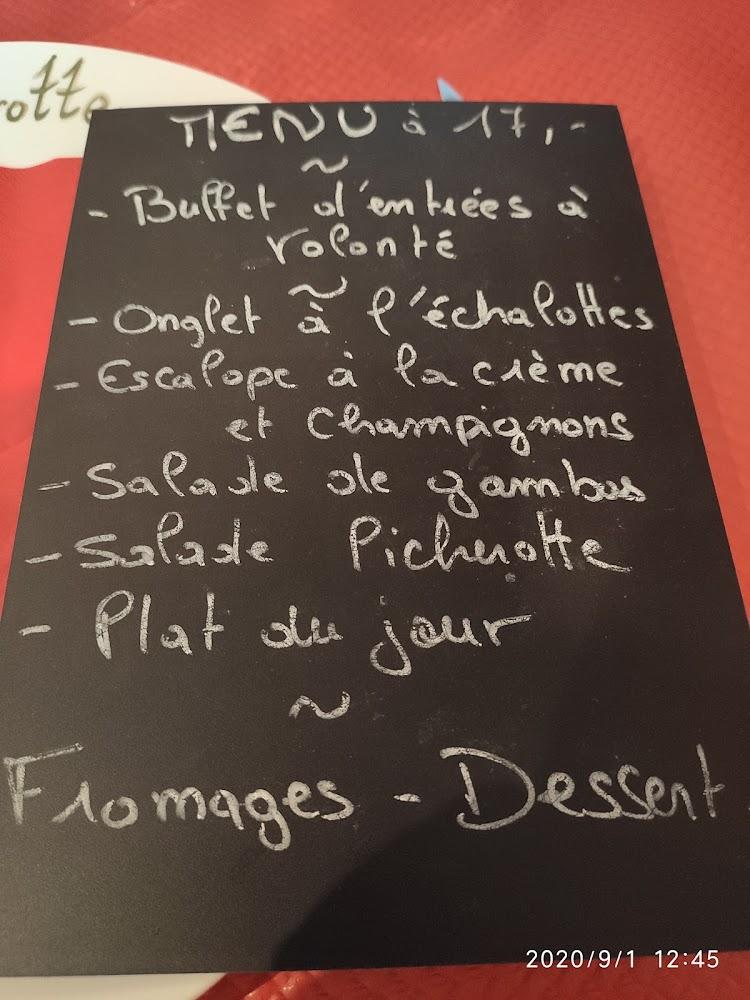 otte
MENU à 17,-
~
- Buffet d'entrées à
volonté
~
- Onglet à l'échalottes
- Escalope à la crème
et champignons
- Salade de gambas
- Salade Picherotte
- Plat du jour
~
Fromages - Dessert
2020/9/1 12:45